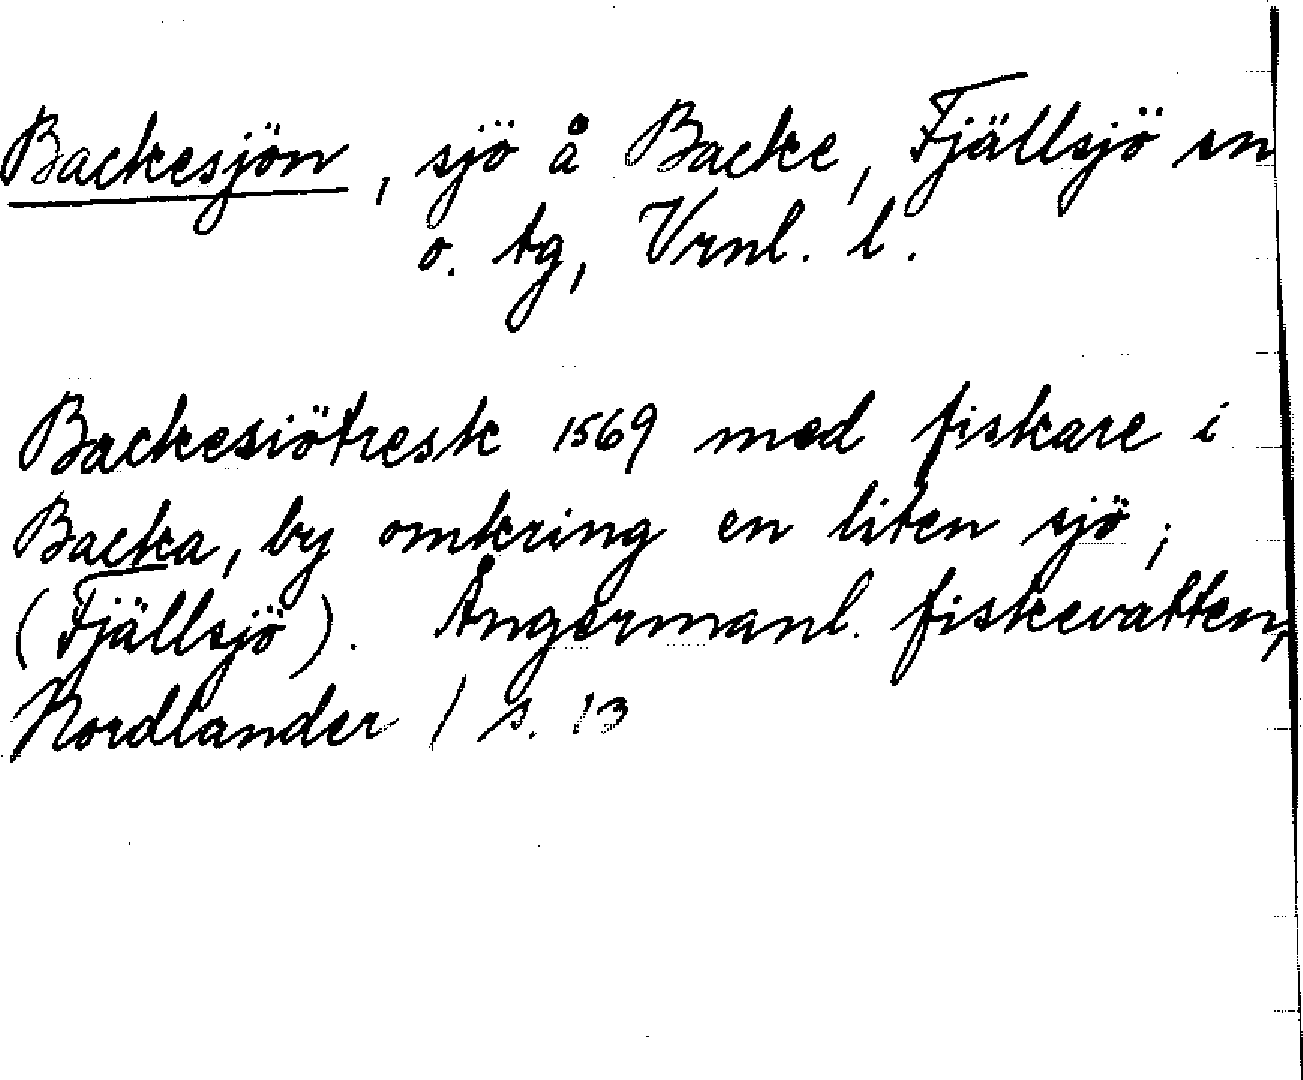 Backesjön, sjö å Backe, Fjällsjö sn
o. tg, Vrnl. l.
Backesiötresk 1569 med fiskare i
Backa, by omkring en liten sjö;
(Fjällsjö). Ångermanl. fiskevatten,
Nordlander / s. 13